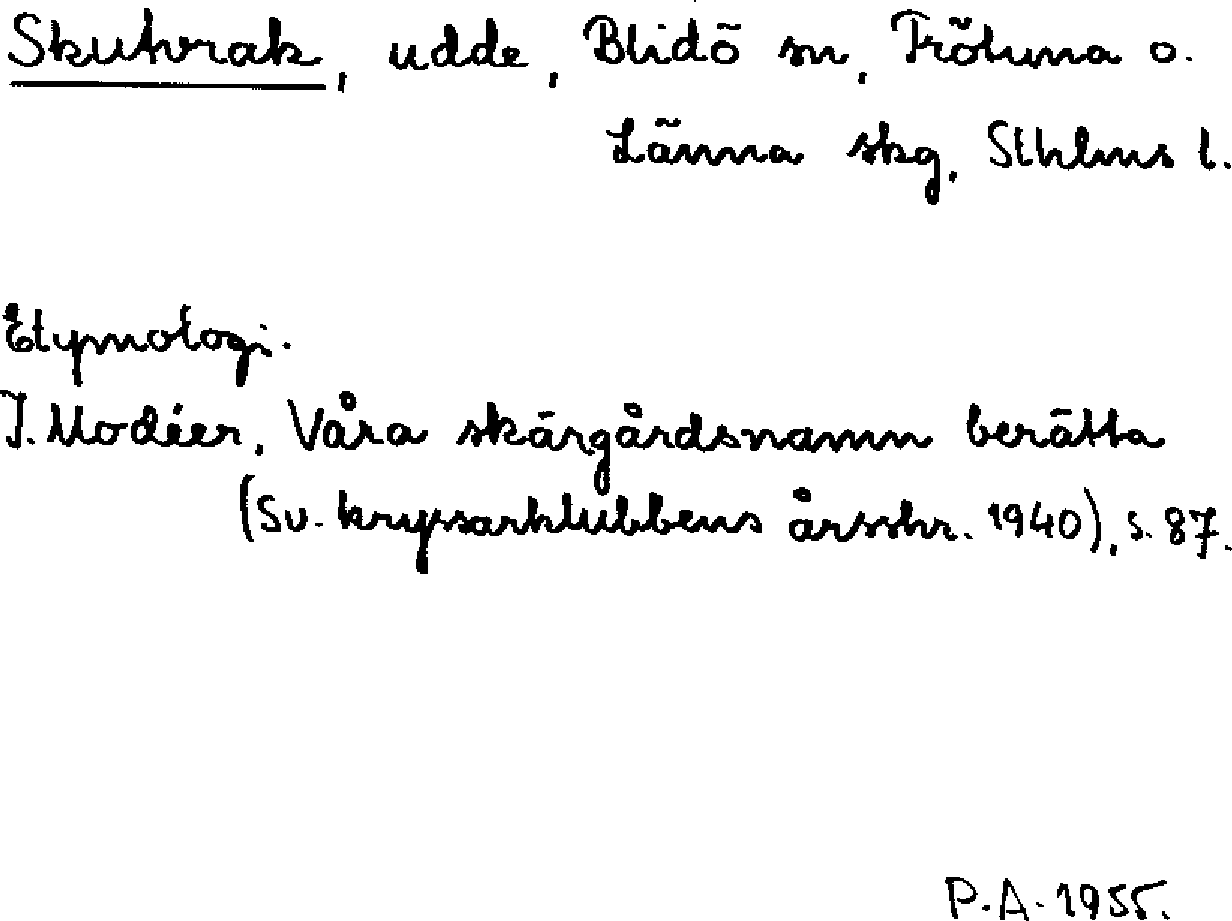 Skutvrak, udde, Blidö sn, Frötuna o.
Länna skg, Sthlms l.
Etymologi.
I. Modéer, Våra skärgårdsnamn berätta
(Sv. kryssarklubbens årsskr. 1940), s. 87.
P.A. 1955.